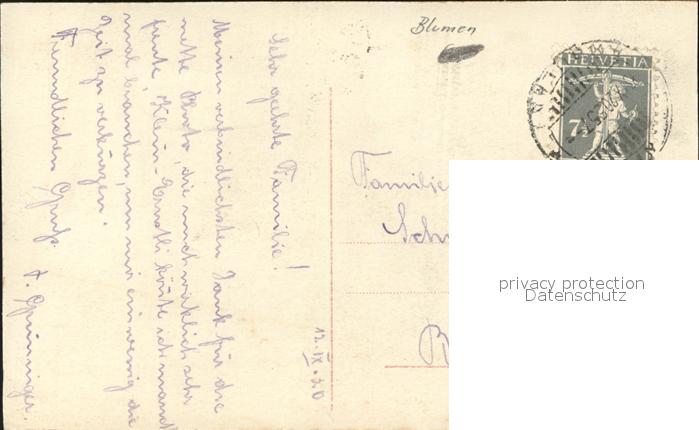 Blumen
HELVETIA
7½
Sehr geehrte Familie!
Meinen verbindlichsten Dank für die
nette Photo, die mich wirklich sehr
freute, Klein-Ernstli könnte ich manch
mal brauchen, um mir ein wenig die
Zeit zu verkürzen.
Freundlichen Gruß
F. Grüninger.
12.IX.20
Familie
privacy protection
Datenschutz